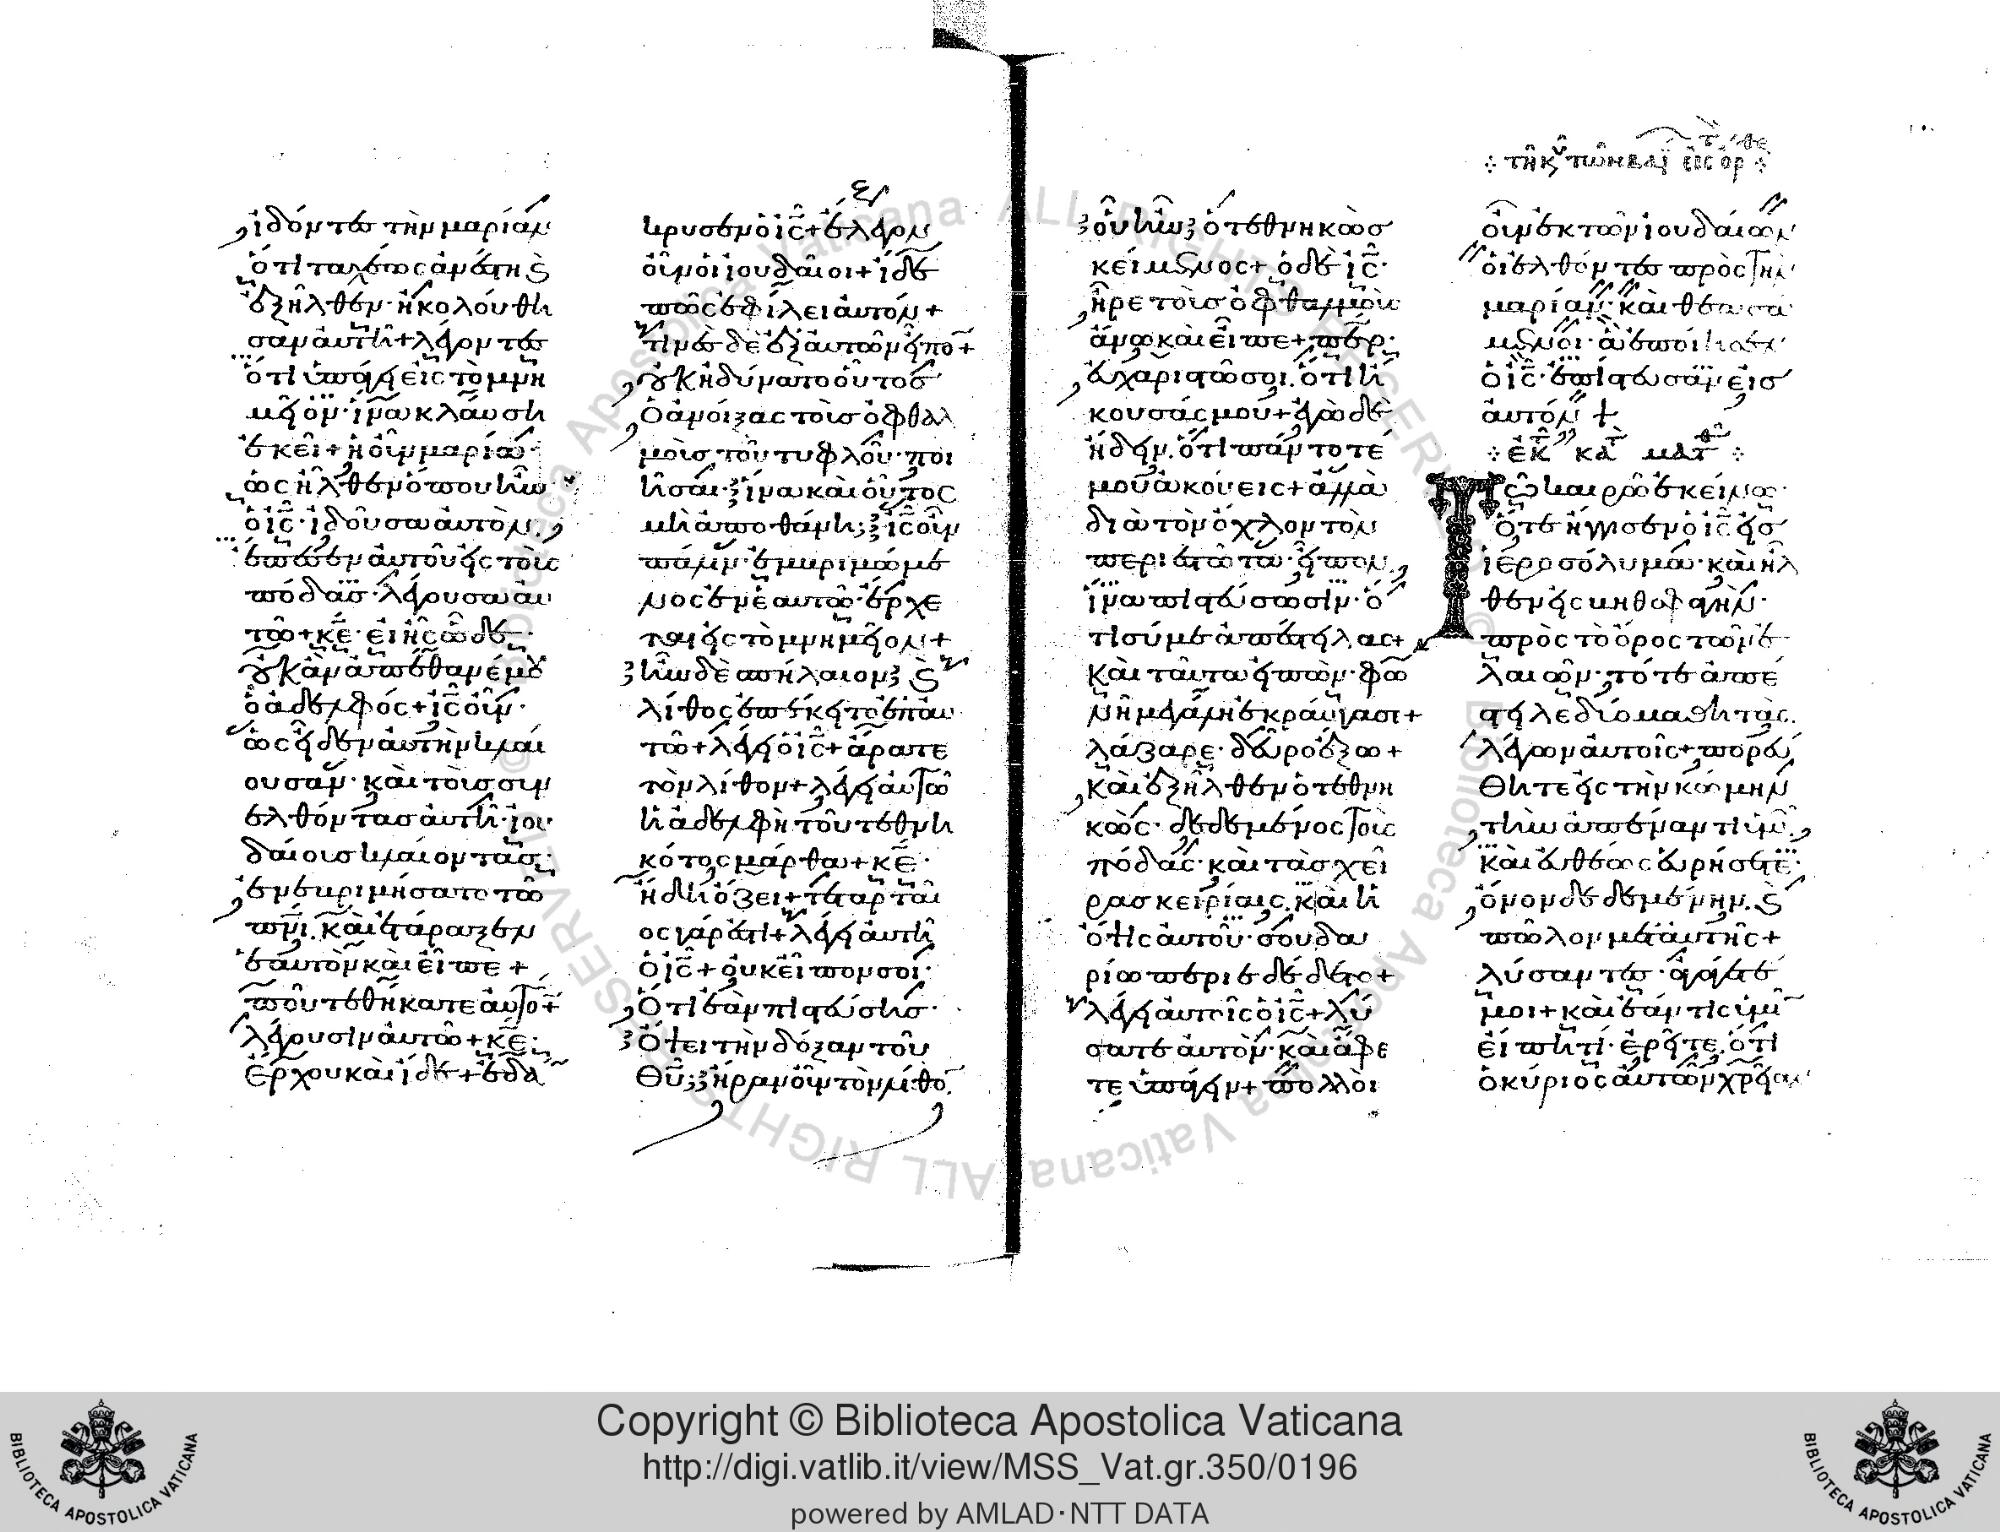 ἰδόντες τὴν μαριὰν
ὅτι ταχέως ἀνέστη κ(αὶ)
ἐξῆλθεν· ἠκολούθη
σαν αὐτῆ + λέγοντες
ὅτι ὑπάγει εἰς τὸ μνη
μεῖον· ἵνα κλαύση
ἐκεῖ + ἡ οὖν μαρία·
ὡς ἦλθεν ὅπου ἦν
ὁ ις· ἰδοῦσα αὐτὸν·
ἔπεσεν αὐτοῦ εἰς τοὺς
πόδας· λέγουσα αυ
τῶ + κε· εἰ ἦς ὧδε·
οὐκ ἂν ἀπέθανέ μου
ὁ ἀδελφός + ις οὖν·
ὡς εἶδεν αὐτὴν κλαί
ουσαν· καὶ τοὺς συν
ελθόντας αὐτῆ· ἰου
δαίους κλαίοντας·
ἐνεβριμήσατο τῶ
πνι· καὶ ἐτάραξεν
ἑαυτὸν καὶ εἶπε +
ποῦ τεθήκατε αὐτόν +
λέγουσιν αὐτῶ + κε·
ἔρχου καὶ ἴδε + ἐδά
κρυσεν ὁ ις + ἔλεγον
οὖν οἱ ἰουδαῖοι + ἴδε
πῶς ἐφίλει αὐτόν +
τινὲς δὲ ἐξ αὐτῶν εἶπον +
οὐκ ἠδύνατο οὗτος
ὁ ἀνοίξας τοὺς ὀφθαλ
μοὺς τοῦ τυφλοῦ· ποι
ῆσαι· ἵνα καὶ οὗτος
μὴ ἀποθάνη; ις οὖν
πάλιν· ἐμβριμώμε
νος ἐν ἑαυτῶ· ἔρχε
ται εἰς τὸ μνημεῖον +
ἦν δὲ σπήλαιον κ(αὶ)
λίθος ἐπέκειτο ἐπ' αυ
τῶ + λέγει ὁ ις + ἄρατε
τὸν λίθον + λέγει αὐτῶ
ἡ ἀδελφὴ τοῦ τεθνη
κότος μάρθα + κε·
ἤδη ὄζει + τεταρταῖ
ος γάρ ἐστι + λέγει αὐτῆ
ὁ ις + οὐκ εἶπον σοι·
ὅτι ἐὰν πιστεύσης·
ὄψει τὴν δόξαν τοῦ
θυ; ἦραν οὖν τὸν λίθον
οὗ ἦν ὁ τεθνηκὼς
κείμενος + ὁ δὲ ις·
ἦρε τοὺς ὀφθαλμοὺς
ἄνω καὶ εἶπε + περ·
εὐχαριστῶ σοι. ὅτι ἤ
κουσάς μου + ἐγὼ δὲ
ἤδειν. ὅτι πάντοτέ
μου ἀκούεις + ἀλλὰ
διὰ τὸν ὄχλον τὸν
περιεστῶτα εἶπον,
ἵνα πιστεύσωσιν· ὅ
τι σύ με ἀπέστειλας +
καὶ ταῦτα εἰπὼν· φω
νῆ μεγάλη ἐκραύγασε +
λάζαρε· δεῦρο ἔξω +
καὶ ἐξῆλθεν ὁ τεθνη
κώς· δεδεμένος τοὺς
πόδας· καὶ τὰς χεῖ
ρας κειρίαις. καὶ ἡ
ὄψις αὐτοῦ· σουδα
ρίω περιεδέδετο +
λέγει αὐτοῖς ὁ ις + λύ
σατε αὐτὸν· καὶ ἄφε
τε ὑπάγειν + πολλοὶ
τῆ κυ τῶν βαΐ εἰς ὀρ
οὖν ἐκ τῶν ἰουδαίων
οἱ ἐλθόντες πρὸς τὴν
μαρίαν· καὶ θεασά
μενοι· ἃ ἐποίησεν
ὁ ις· ἐπίστευσαν εἰς
αὐτόν +
ἐκ κα ματθ
Τῶ καιρῶ ἐκείνω·
ὅτε ἤγγισεν ὁ ις εἰς
ἱεροσόλυμα· καὶ ἦλ
θεν εἰς βηθσφαγὴν·
πρὸς τὸ ὄρος τῶν ἐ
λαιῶν· τότε ἀπέ
στειλε δύο μαθητὰς.
λέγων αὐτοῖς + πορεύ
θητε εἰς τὴν κώμην
τὴν ἀπέναντι ὑμῶν,
καὶ εὐθέως εὑρήσετε·
ὄνον δεδεμένην. κ(αὶ)
πῶλον μετ' αὐτῆς +
λύσαντες· ἀγάγετέ
μοι + καὶ ἐάν τις ὑμῖν
εἴπη τί· ἐρεῖτε. ὅτι
ὁ κύριος αὐτῶν χρείαν
Copyright © Biblioteca Apostolica Vaticana
http://digi.vatlib.it/view/MSS_Vat.gr.350/0196
powered by AMLAD·NTT DATA
BIBLIOTECA APOSTOLICA VATICANA
BIBLIOTECA APOSTOLICA VATICANA